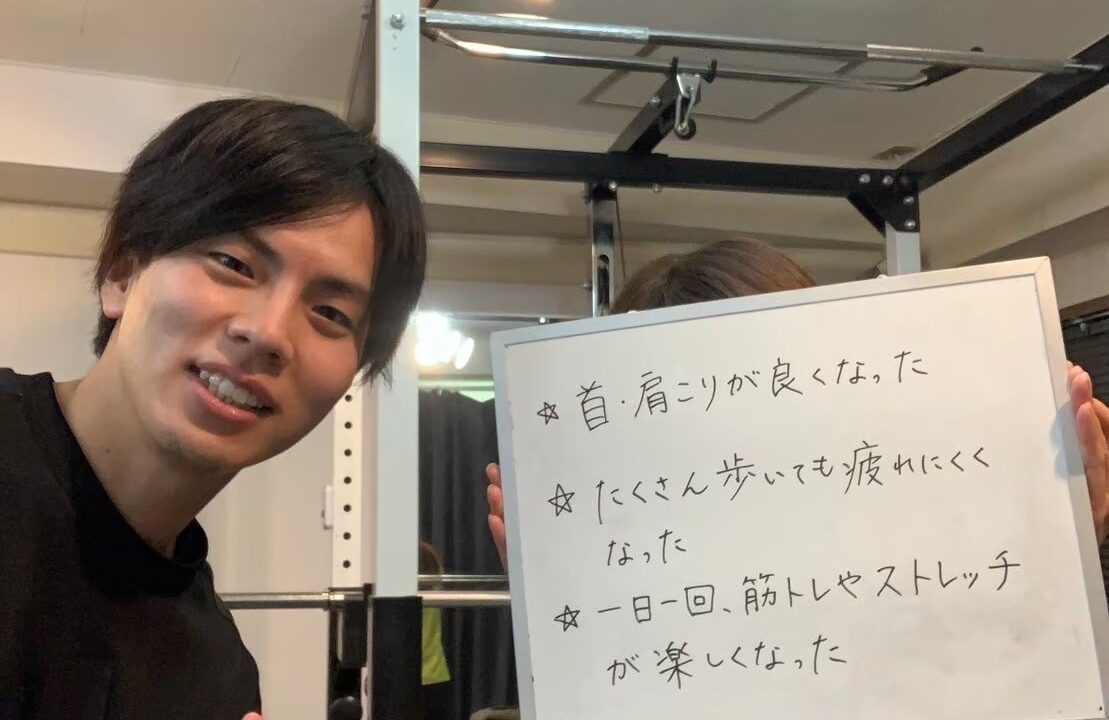 ☆ 首・肩こりが良くなった
☆ たくさん歩いても疲れにくく
なった
☆ 一日一回、筋トレやストレッチ
が楽しくなった